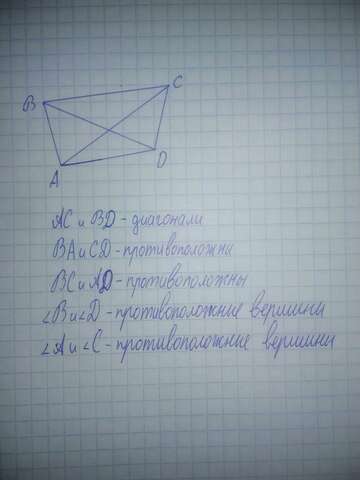 B
C
A
D
AC и BD - диагонали
BA и CD - противоположны
BC и AD - противоположны
∠B и ∠D - противоположные вершины
∠A и ∠C - противоположные вершины